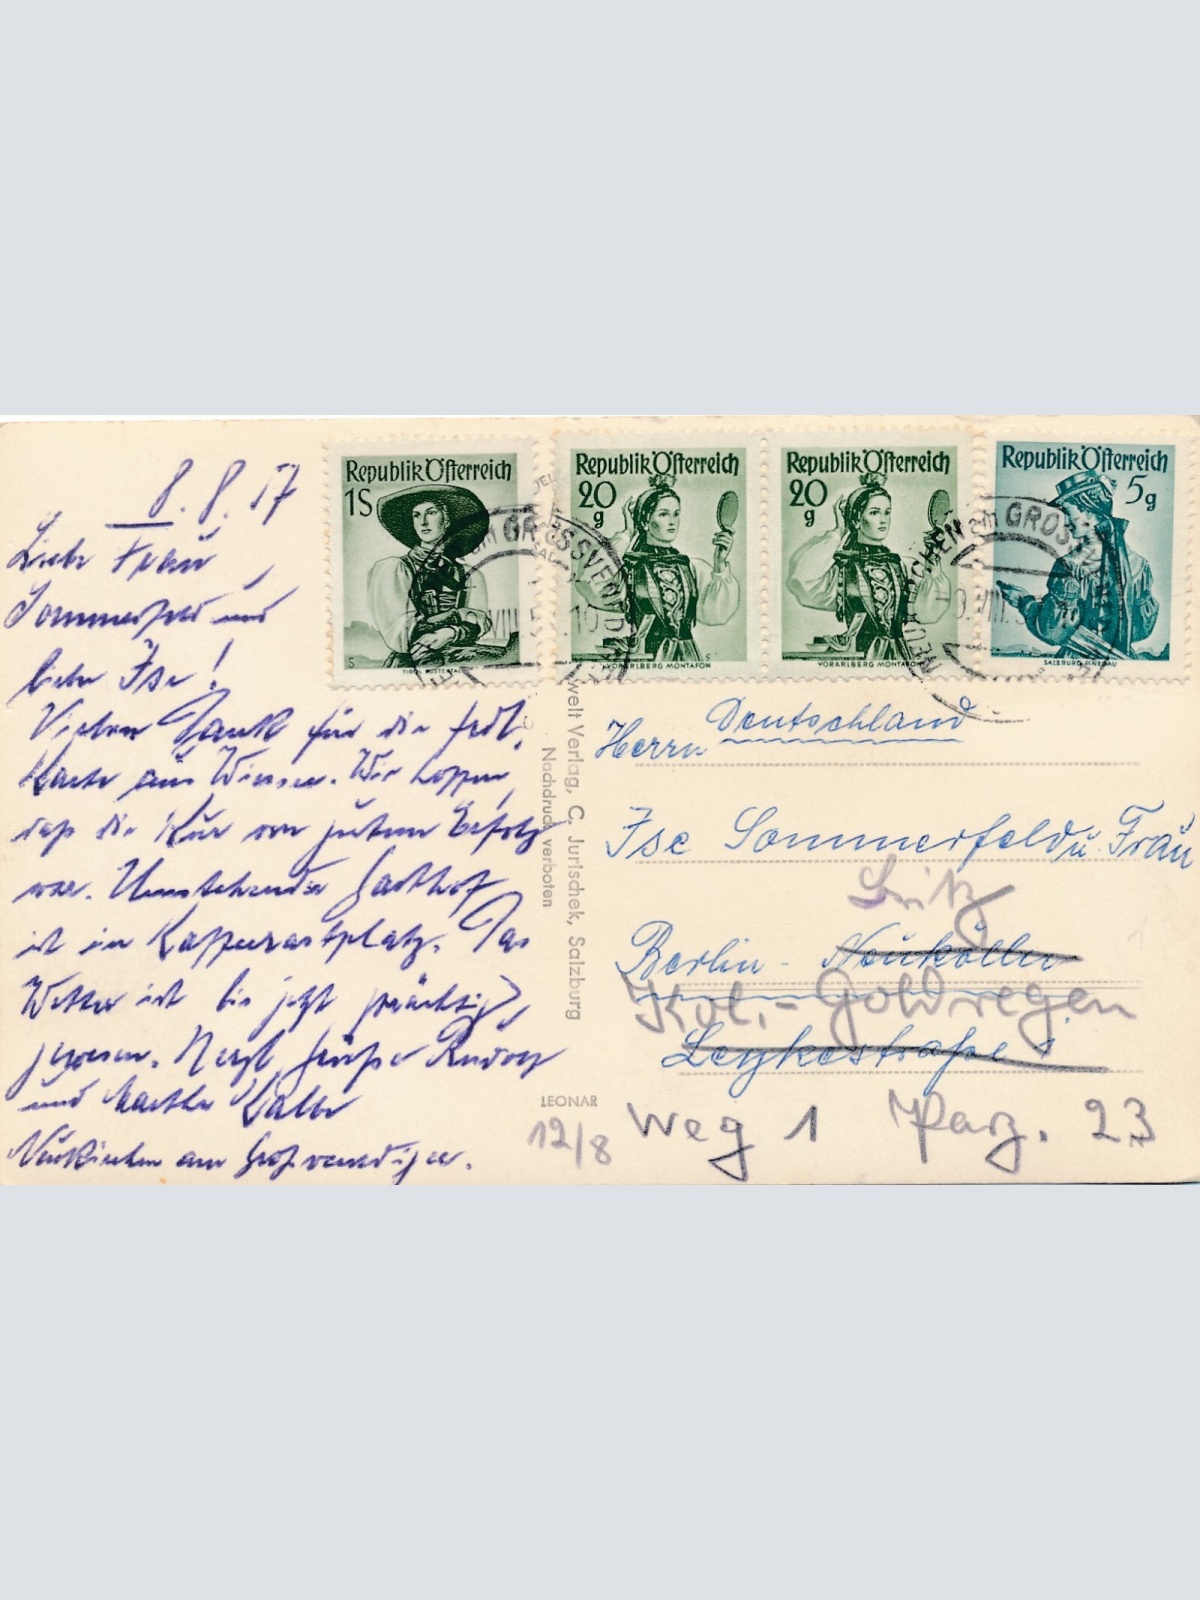 8.8.57
Liebe Frau
Sommerfeld und
liebe Ise!
Vielen Dank für die frdl.
Karte aus Wiessee. Wir hoffen,
daß die Kur von gutem Erfolg
war. Umstehender Gasthof
ist in Kapperastplatz. Das
Wetter ist bis jetzt prächtig
gewesen. Herzl. Grüße Rudolf
und Martha
Neukirchen am Großvenediger.
Republik Österreich
1S
Republik Österreich
20 g
VORARLBERG MONTAFON
Republik Österreich
20 g
VORARLBERG MONTAFON
Republik Österreich
5 g
SALZBURG PINZGAU
NEUKIRCHEN am GROSSVENEDIGER
welt Verlag, C. Jurischek, Salzburg
Nachdruck verboten
LEONAR
12/8
Deutschland
Herrn
Ise Sommerfeld u. Frau
Britz
Berlin - Neukölln
Kol. - Goldregen
Leykestraße 1
Weg 1 Parz. 23